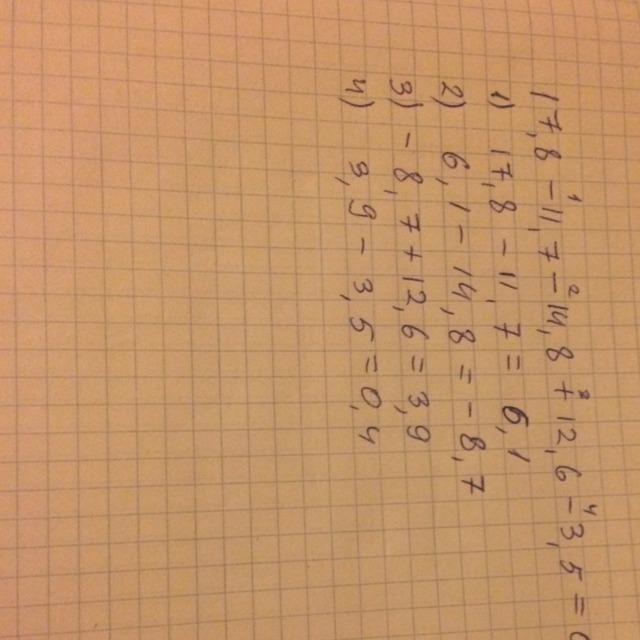 17,8 - 11,7 - 14,8 + 12,6 - 3,5 = 0
1) 17,8 - 11,7 = 6,1
2) 6,1 - 14,8 = -8,7
3) -8,7 + 12,6 = 3,9
4) 3,9 - 3,5 = 0,4